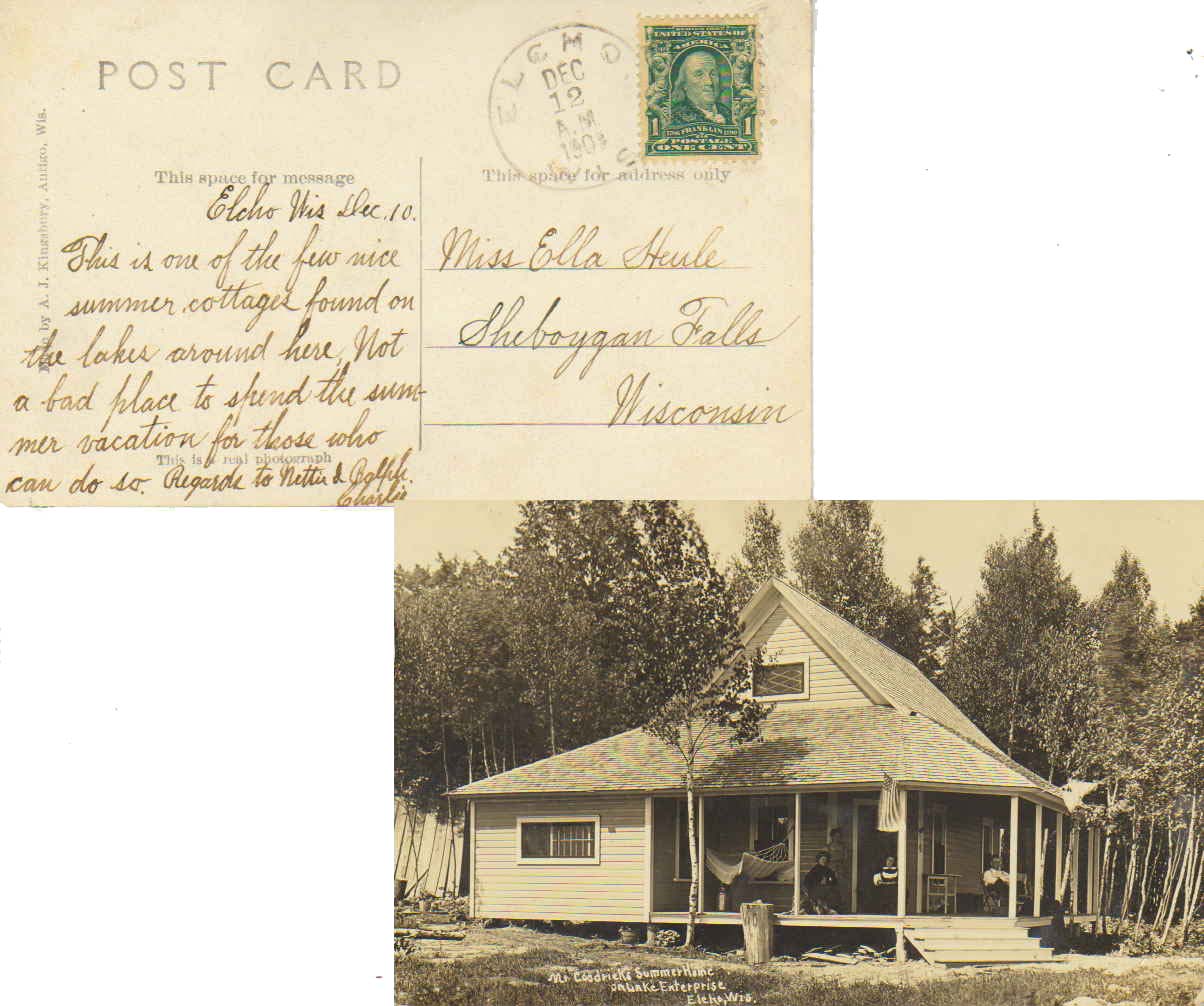 POST CARD
ELCHO,
DEC
12
A.M.
WIS
UNITED STATES OF
AMERICA
1 FRANKLIN 1
POSTAGE
ONE CENT
Made by A. J. Kingsbury, Antigo, Wis.
This space for message
Elcho Wis Dec. 10.
This is one of the few nice
summer cottages found on
the lakes around here, Not
a bad place to spend the sum-
mer vacation for those who
This is a real photograph
can do so. Regards to Nettie & Ralph.
Charlie
This space for address only
Miss Ella Heule
Sheboygan Falls
Wisconsin
Mr Goodrick's Summer Home
on Lake Enterprise
Elcho, Wis.